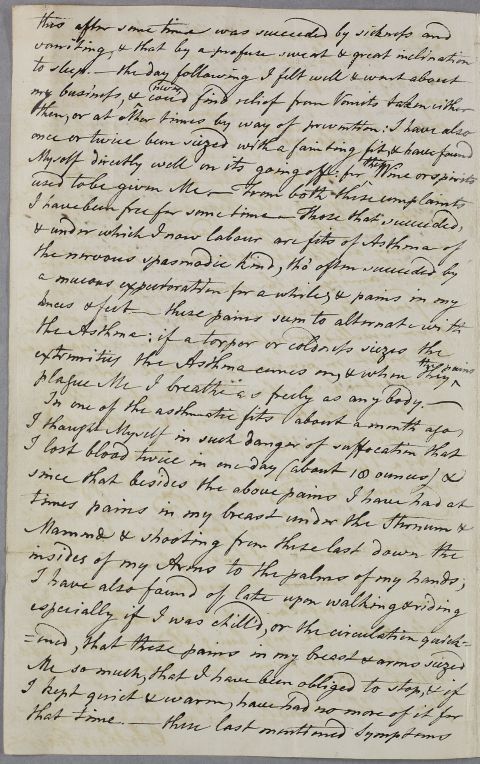 this after some time was succeeded by sickness and
vomiting, & that by a profuse sweat & great inclination
to sleep. — the day following I felt well & went about
my business, & never coud find relief from Vomits taken either
then, or at other times by way of prevention: I have also
once or twice been seized with a fainting fit, & have found
Myself directly well on its going off: for this Wine or spirits
used to be given Me — From both these complaints
I have been free for some time — Those that succeeded,
& under which I now labour are fits of Asthma of
the nervous spasmodic kind, tho' often succeeded by
a mucous expectoration for a while, & pains in my
knees & feet — these pains seem to alternate with
the Asthma: if a torpor or coldness siezes the
extremities the Asthma comes on, & when the pains
plague Me I breathe as freely as any body. —
In one of the asthmatic fits about a month ago,
I thought Myself in such danger of suffocation that
I lost blood twice in one day (about 18 ounces) &
since that besides the above pains I have had at
times pains in my breast under the Sternum &
Mammæ & shooting from these last down the
insides of my Arms to the palms of my hands;
I have also found of late upon walking & riding
especially if I was chill'd, or the circulation quick-
=ened, that these pains in my breast & arms seized
Me so much, that I have been obliged to stop, & if
I kept quiet & warm, have had no more of it for
that time. — these last mentioned symptoms